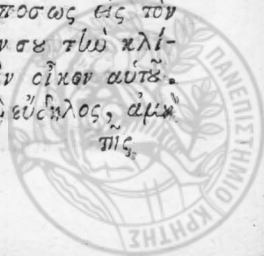 πόσως εἰς τὸν
σου τὴν κλί-
οἶκον αὐτοῦ.
εὔδηλος,
της
ΠΑΝΕΠΙΣΤΗΜΙΟ ΚΡΗΤΗΣ